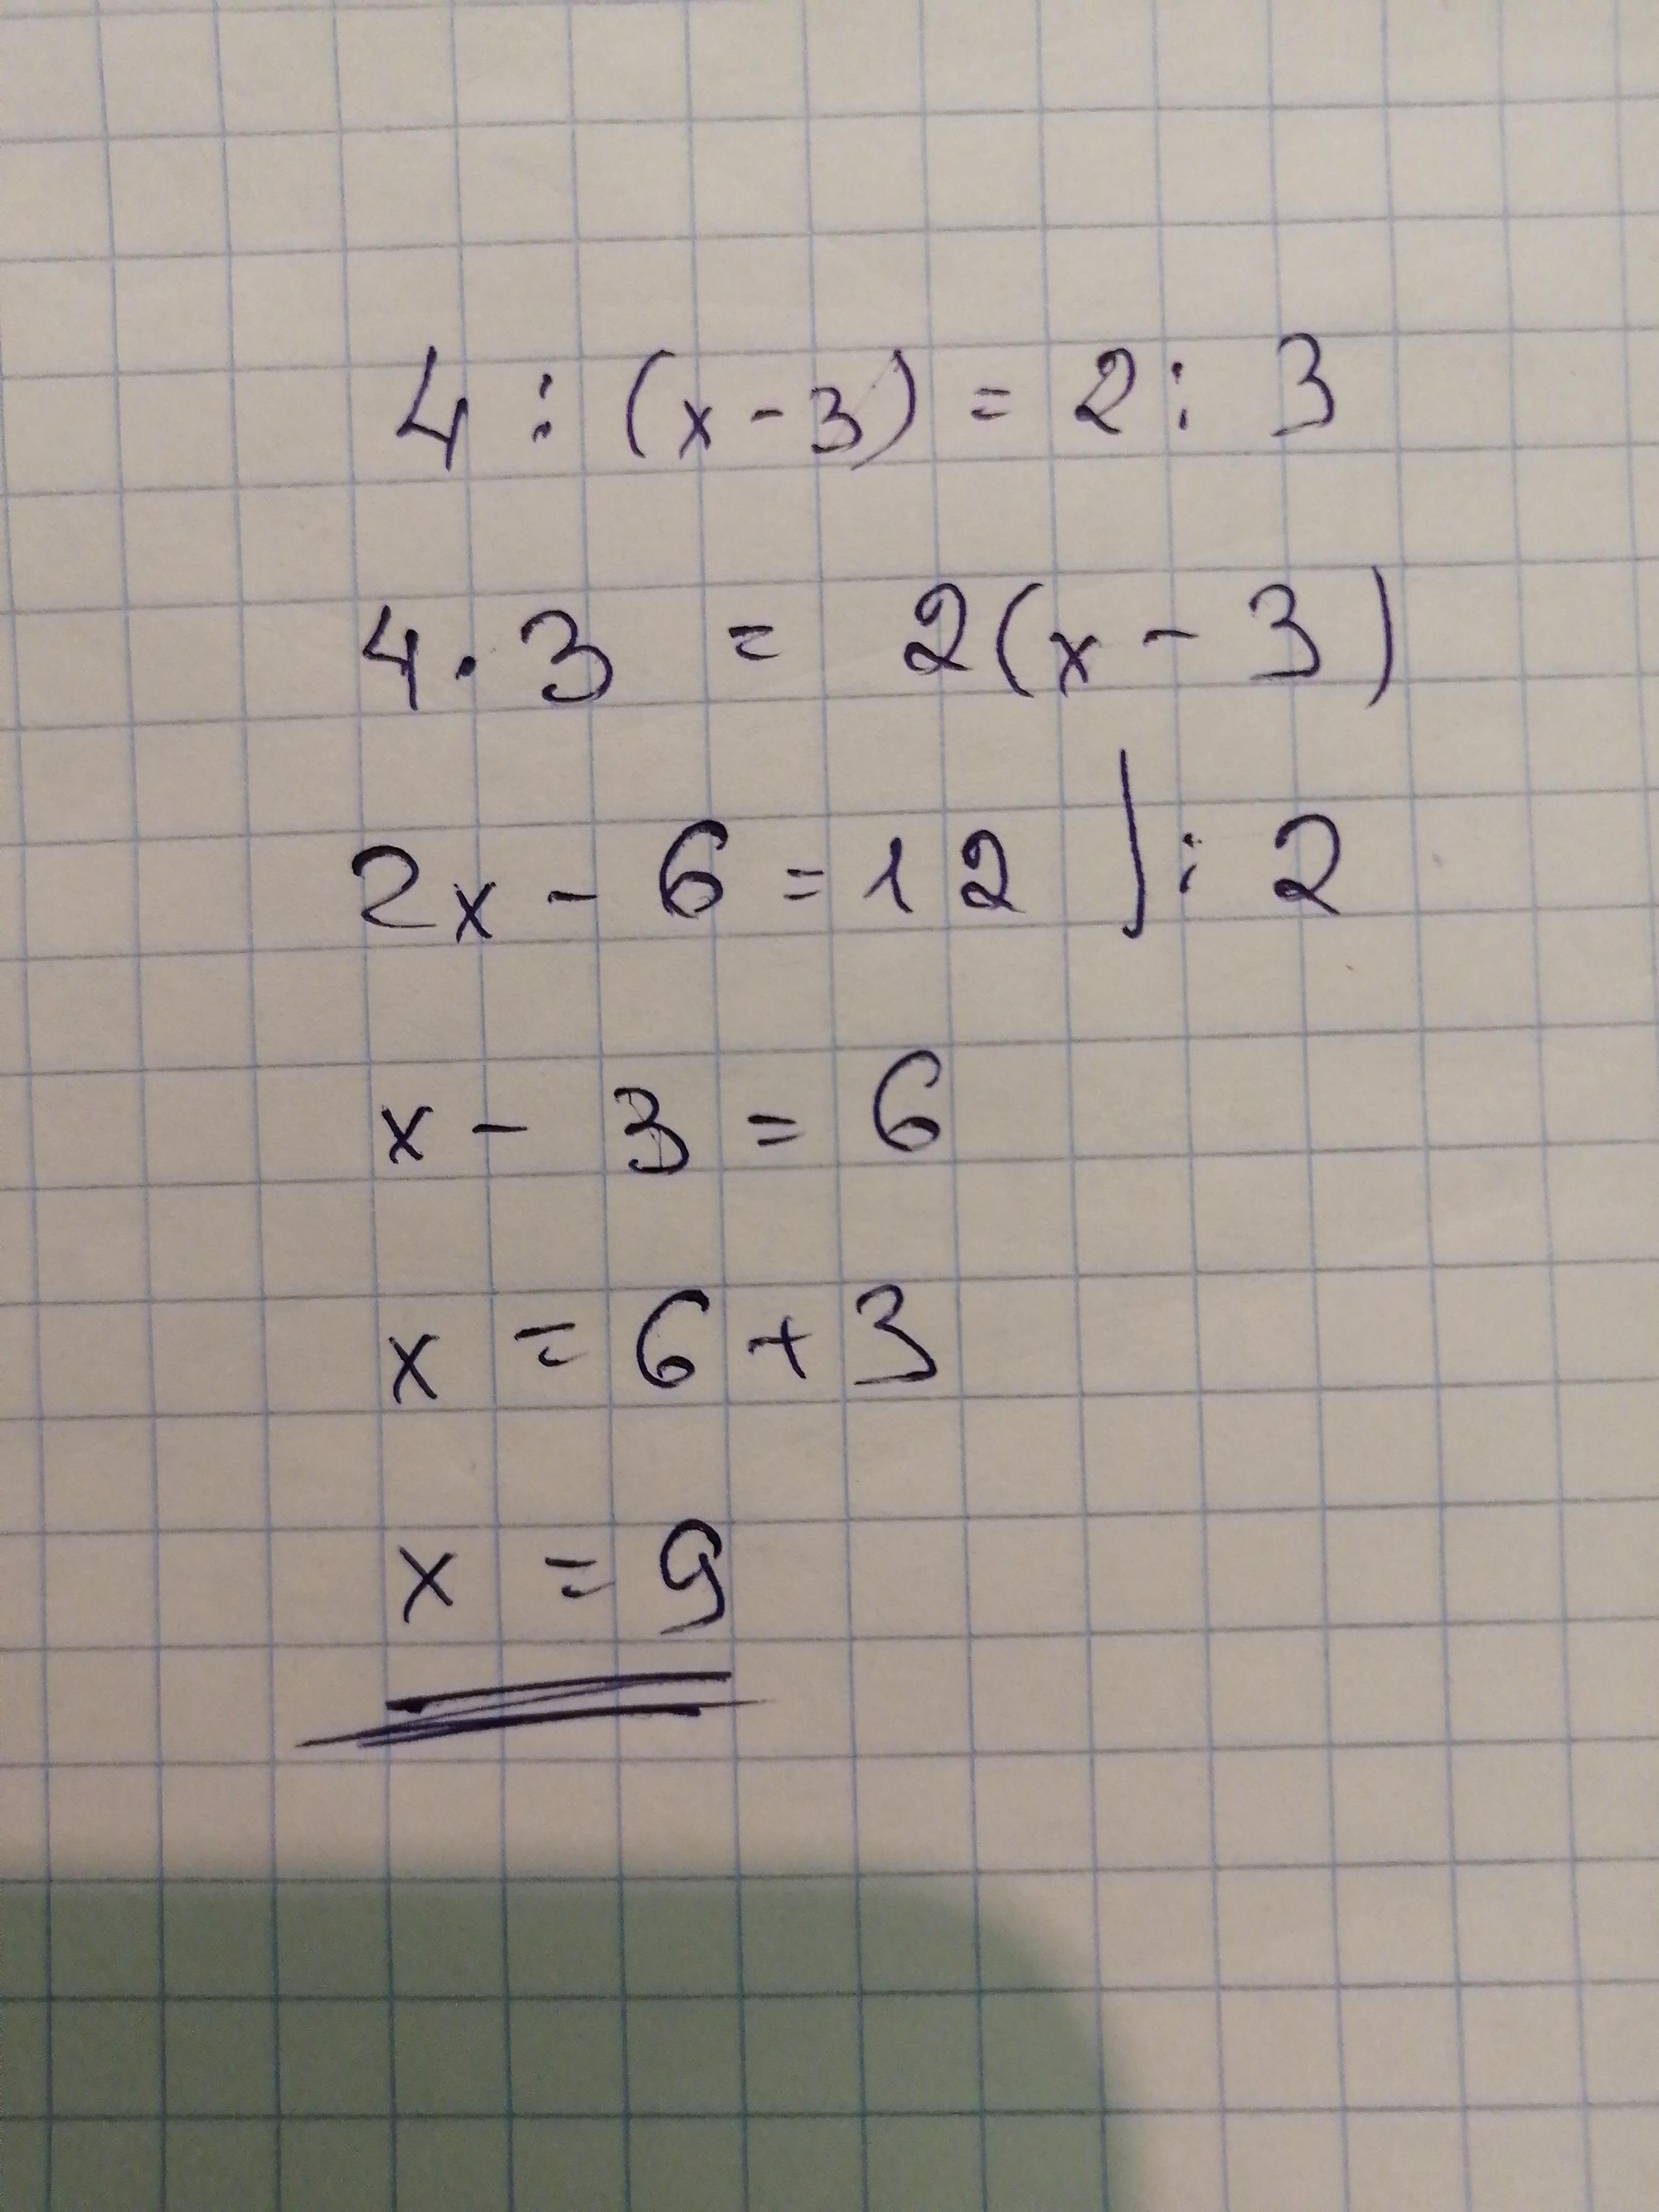 4 : (x - 3) = 2 : 3
4 · 3 = 2(x - 3)
2x - 6 = 12 | : 2
x - 3 = 6
x = 6 + 3
x = 9